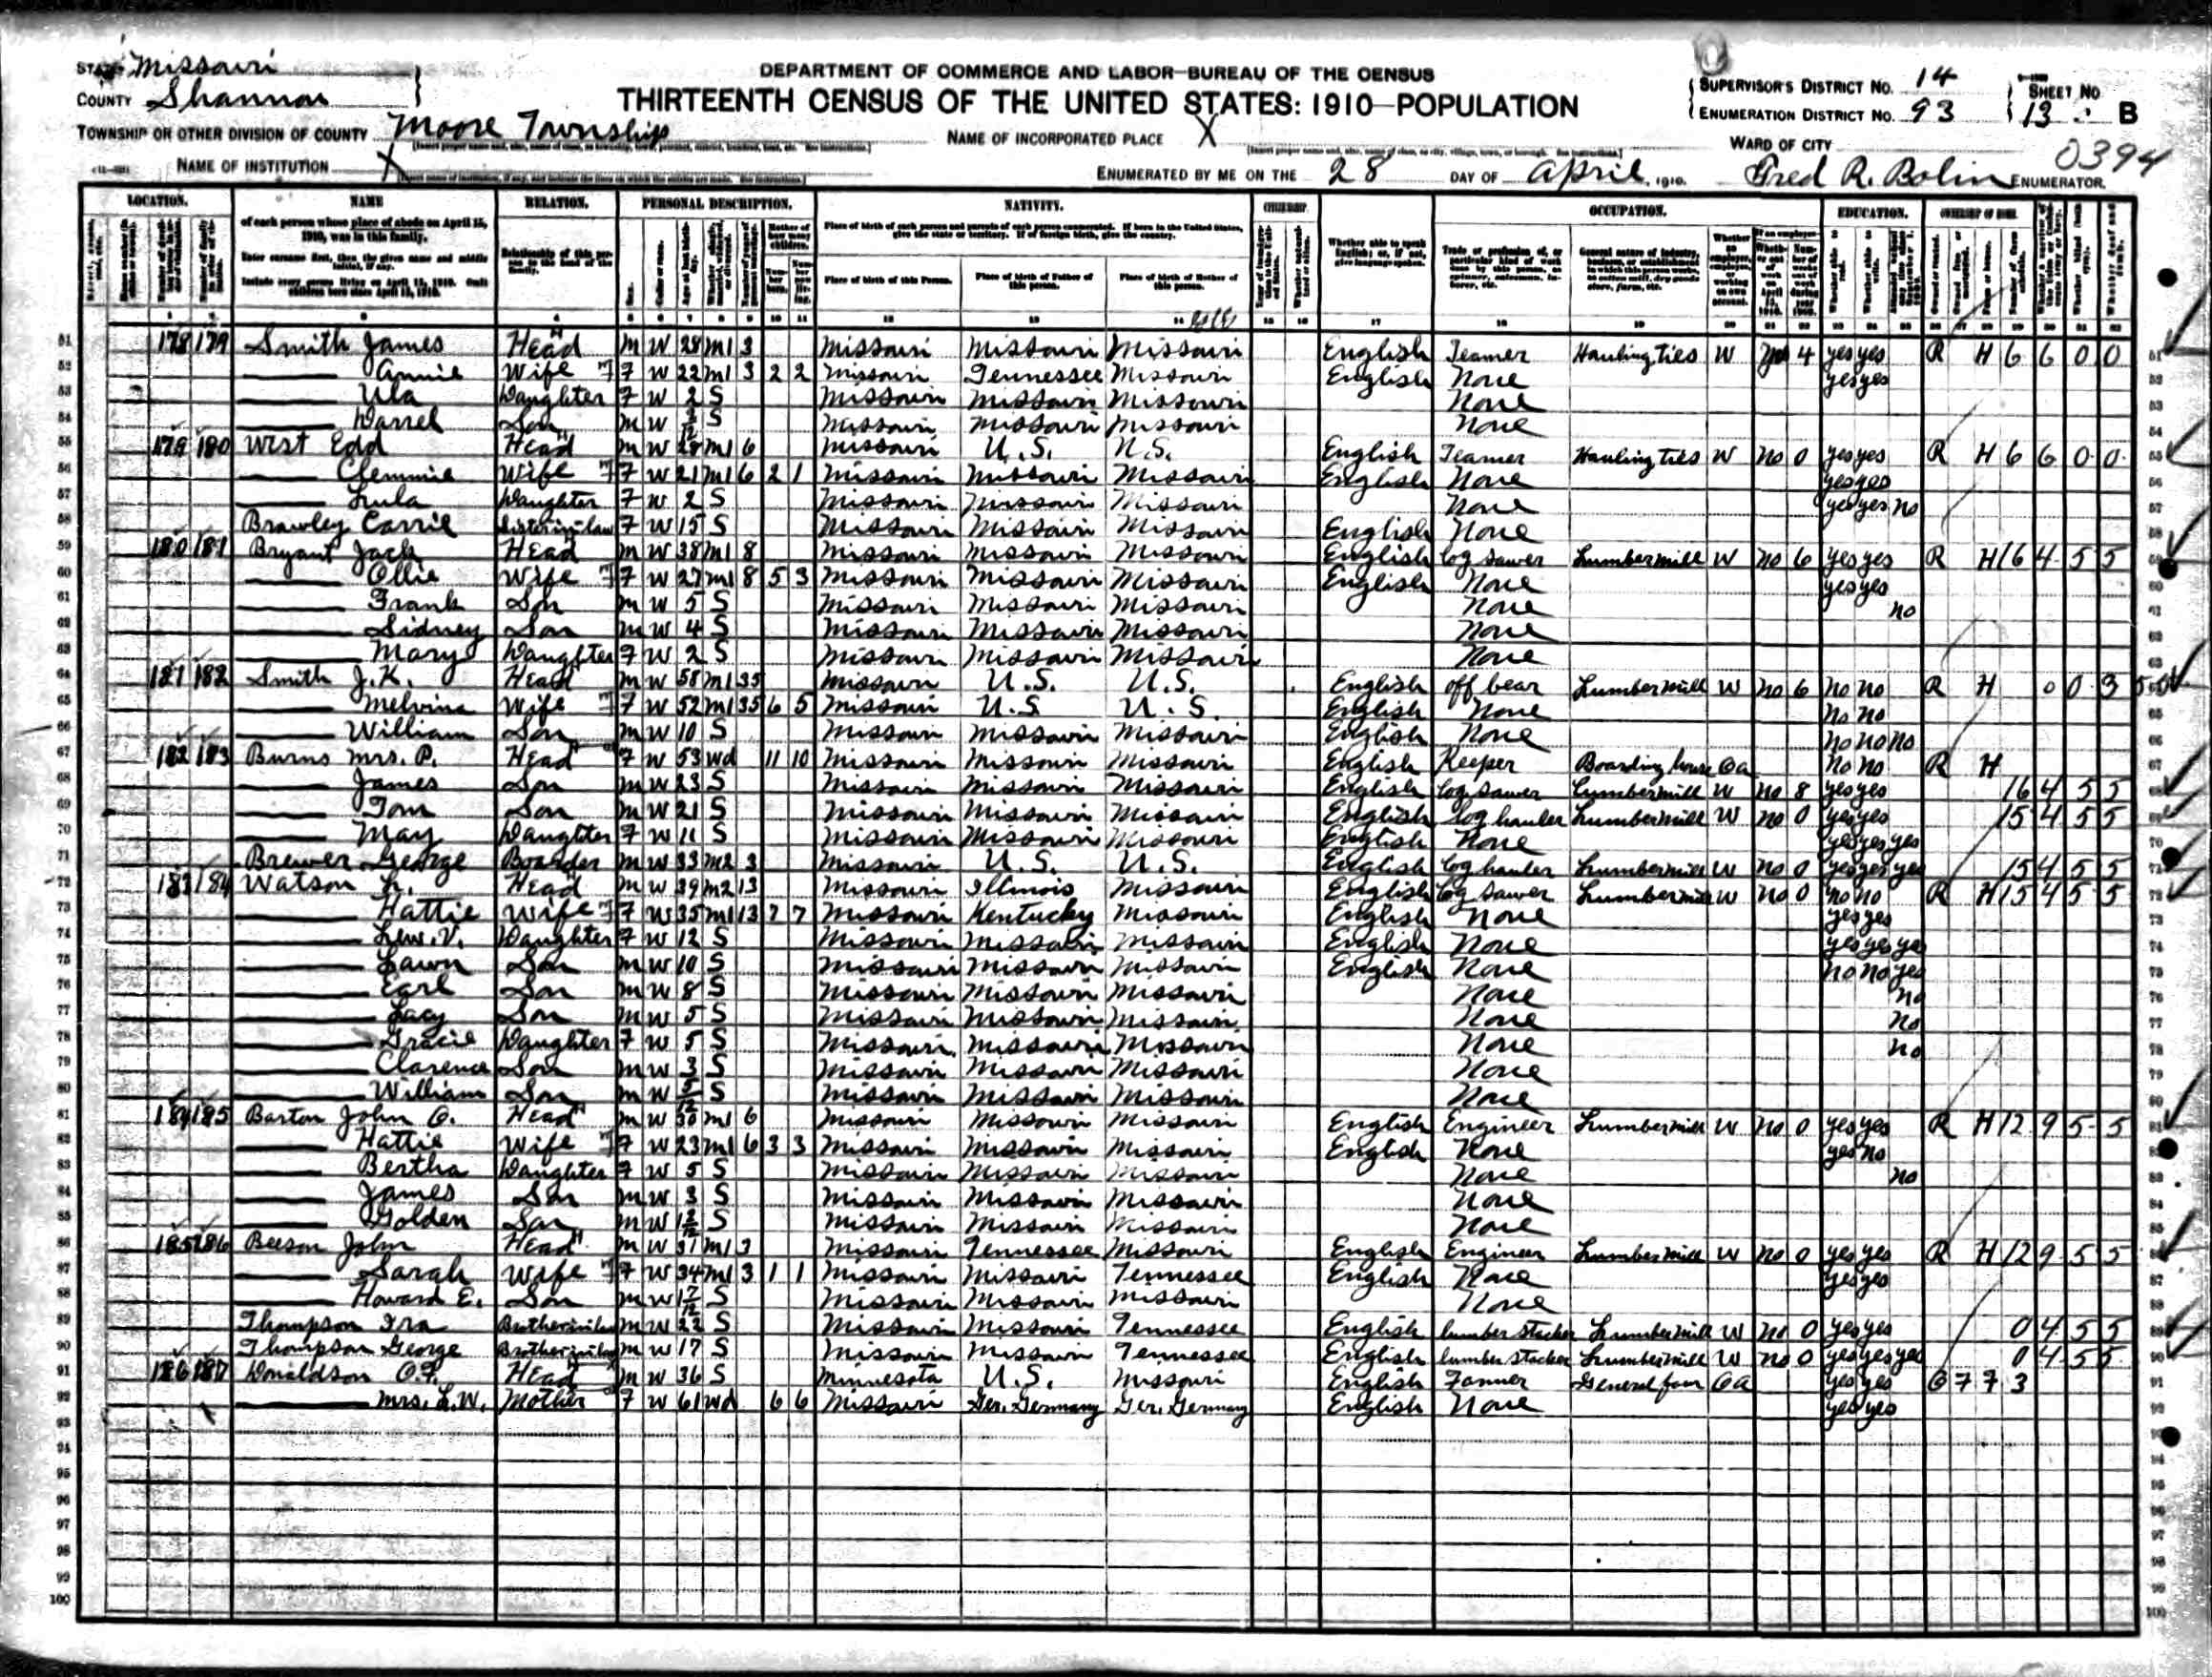 STATE Missouri
COUNTY Shannon
DEPARTMENT OF COMMERCE AND LABOR—BUREAU OF THE CENSUS
THIRTEENTH CENSUS OF THE UNITED STATES: 1910—POPULATION
SUPERVISOR'S DISTRICT No. 14
ENUMERATION DISTRICT No. 93
SHEET No. 13 B
TOWNSHIP OR OTHER DIVISION OF COUNTY Moore Township
NAME OF INCORPORATED PLACE X
WARD OF CITY
0394
NAME OF INSTITUTION X
ENUMERATED BY ME ON THE 28 DAY OF April, 1910. Fred R. Bolin ENUMERATOR.
LOCATION. NAME RELATION. PERSONAL DESCRIPTION. NATIVITY. CITIZENSHIP. OCCUPATION. EDUCATION. OWNERSHIP OF HOME.
of each person whose place of abode on April 15, 1910, was in this family.
Enter surname first, then the given name and middle initial, if any.
Include every person living on April 15, 1910. Omit children born since April 15, 1910.
Relationship of this person to the head of the family.
Place of birth of this Person. Place of birth of Father of this person. Place of birth of Mother of this person.
Whether able to speak English; or, if not, give language spoken.
51 178 179 Smith James Head M W 28 M1 3 Missouri Missouri Missouri English Teamer Hauling ties W Yes 4 yes yes R H 6 6 0 0
52 Annie Wife F W 22 M1 3 2 2 Missouri Tennessee Missouri English None yes yes
53 Ula Daughter F W 2 S Missouri Missouri Missouri None
54 Darrel Son M W S Missouri Missouri Missouri None
55 179 180 West Edd Head M W 28 M1 6 Missouri U.S. U.S. English Teamer Hauling ties W No 0 yes yes R H 6 6 0 0
56 Clemmie Wife F W 21 M1 6 2 1 Missouri Missouri Missouri English None yes yes
57 Lula Daughter F W 2 S Missouri Missouri Missouri None yes yes no
58 Brawley Carrie Sister in law F W 15 S Missouri Missouri Missouri English None
59 180 181 Bryant Jack Head M W 38 M1 8 Missouri Missouri Missouri English log sawer Lumber mill W No 6 yes yes R H 16 4 5 5
60 Ollie Wife F W 27 M1 8 5 3 Missouri Missouri Missouri English None yes yes
61 Frank Son M W 5 S Missouri Missouri Missouri None no
62 Sidney Son M W 4 S Missouri Missouri Missouri None
63 Mary Daughter F W 2 S Missouri Missouri Missouri None
64 181 182 Smith J.K. Head M W 58 M1 35 Missouri U.S. U.S. English off bear Lumber mill W No 6 No No R H 0 0 3
65 Melvina Wife F W 52 M1 35 6 5 Missouri U.S. U.S. English None No No
66 William Son M W 10 S Missouri Missouri Missouri English None No No No
67 182 183 Burns Mrs. P. Head F W 53 Wd 11 10 Missouri Missouri Missouri English Keeper Boarding house Oa No No R H
68 James Son M W 23 S Missouri Missouri Missouri English log sawer Lumber mill W No 8 yes yes 16 4 5 5
69 Tom Son M W 21 S Missouri Missouri Missouri English log hauler Lumber mill W No 0 yes yes 15 4 5 5
70 May Daughter F W 11 S Missouri Missouri Missouri English None yes yes yes
71 Brewer George Boarder M W 33 M2 3 Missouri U.S. U.S. English log hauler Lumber mill W No 0 yes yes yes 15 4 5 5
72 183 184 Watson L. Head M W 39 M2 13 Missouri Illinois Missouri English log sawer Lumber mill W No 0 No No R H 15 4 5 5
73 Hattie Wife F W 35 M1 13 7 7 Missouri Kentucky Missouri English None yes yes
74 Lew. V. Daughter F W 12 S Missouri Missouri Missouri English None yes yes yes
75 Lawn Son M W 10 S Missouri Missouri Missouri English None No No yes
76 Earl Son M W 8 S Missouri Missouri Missouri None no
77 Lacy Son M W 5 S Missouri Missouri Missouri None no
78 Gracie Daughter F W 5 S Missouri Missouri Missouri None no
79 Clarence Son M W 3 S Missouri Missouri Missouri None
80 William Son M W 5/12 S Missouri Missouri Missouri None
81 184 185 Barton John O. Head M W 30 M1 6 Missouri Missouri Missouri English Engineer Lumber mill W No 0 yes yes R H 12 9 5 5
82 Hattie Wife F W 23 M1 6 3 3 Missouri Missouri Missouri English None yes no
83 Bertha Daughter F W 5 S Missouri Missouri Missouri None no
84 James Son M W 3 S Missouri Missouri Missouri None
85 Golden Son M W S Missouri Missouri Missouri None
86 185 186 Beeson John Head M W 31 M1 3 Missouri Tennessee Missouri English Engineer Lumber mill W No 0 yes yes R H 12 9 5 5
87 Sarah Wife F W 34 M1 3 1 1 Missouri Missouri Tennessee English None yes yes
88 Howard E. Son M W 1 7/12 S Missouri Missouri Missouri None
89 Thompson Ira Brother in law M W 22 S Missouri Missouri Tennessee English lumber stacker Lumber mill W No 0 yes yes 0 4 5 5
90 Thompson George Brother in law M W 17 S Missouri Missouri Tennessee English lumber stacker Lumber mill W No 0 yes yes yes 0 4 5 5
91 186 187 Donaldson O.F. Head M W 36 S Minnesota U.S. Missouri English Farmer General farm Oa yes yes O F F 3
92 Mrs. L.W. Mother F W 61 Wd 6 6 Missouri Ger. Germany Ger. Germany English None yes yes
93
94
95
96
97
98
99
100